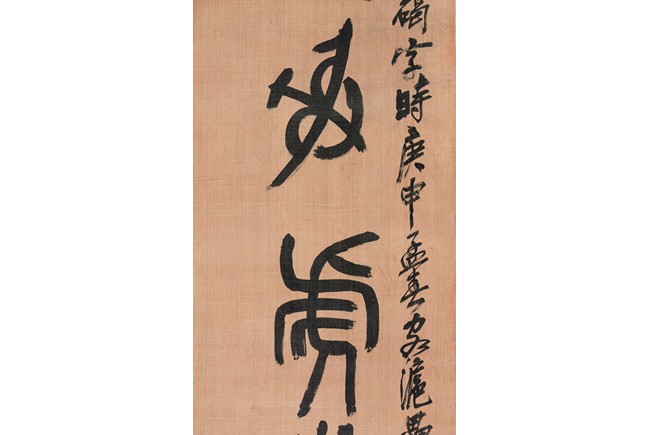 碣字時庚申孟春客滬
虎